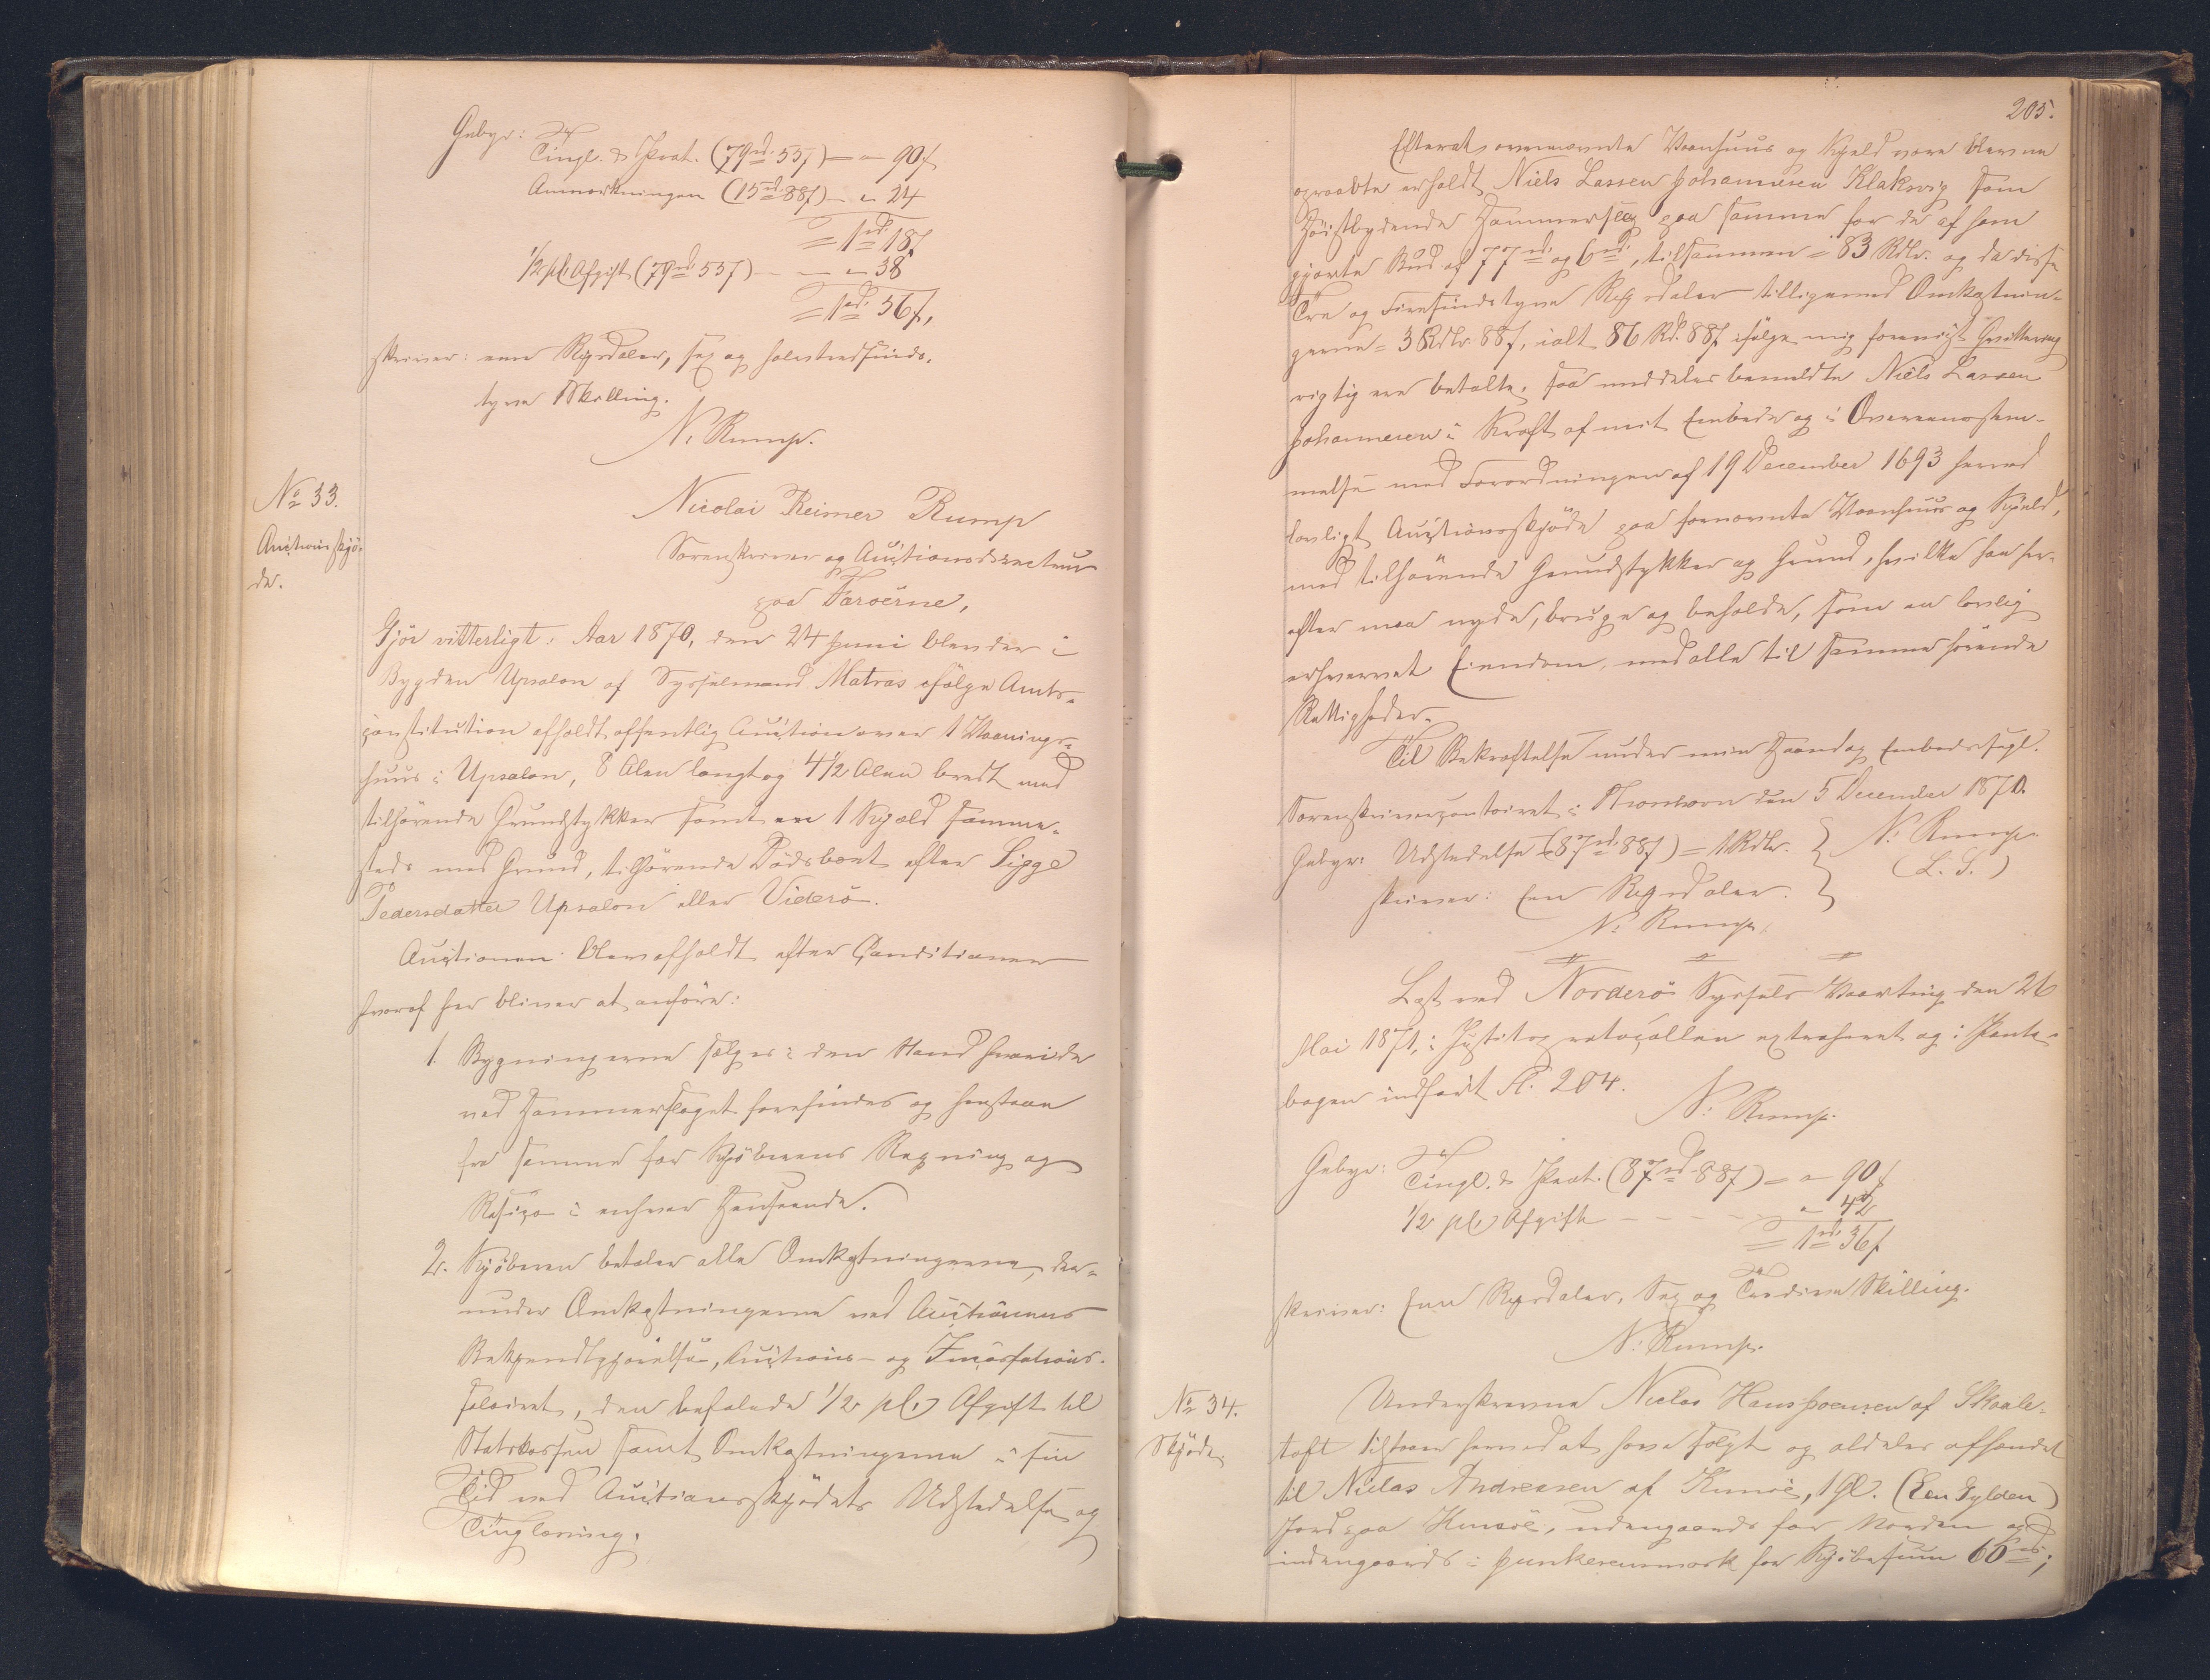 Gebyr: Tingl. & Prot. (79rd. 55ß) = " 90ß
Anmærkningen (15rd 88ß) - " 24
= 1rd. 18ß
1/2 pCt Afgift (79rd. 55ß) - - " 38
= 1rd. 56ß,
skriver: een Rigsdaler, sex og halvtredsinds-
tyve Skilling.
N. Rump.
No 33.
Auctionsskjö-
de.
Nicolai Reimer Rump
Sorenskriver og Auctionsdirecteur
paa Færöerne,
Gjör vitterligt: Aar 1870, den 24 Juni blev der i
Bygden Upsalon af Sysselmand Matras ifölge Amts-
constitution afholdt offentlig Auction over 1 Vaanings-
huus i Upsalon, 8 Alen langt og 4 1/2 Alen bredt med
tilhörende Grundstykker samt en 1 Kjæld samme-
steds med Grund, tilhörende Dödsboet efter Sigge
Pedersdatter Upsalon eller Viderö.
Auctionen blev afholdt efter Conditioner
hvoraf her bliver at anföre:
1. Bygningerne sælges i den Stand hvori de
ved Hammerslaget forefindes og henstaae
fra samme for Kjöberens Regning og
Risico i enhver Henseende.
2. Kjöberen betaler alle Omkostningerne, der-
under Omkostningerne ved Auctionens
Bekjendtgjörelse, Auctions- og Incassations-
salairet, den befalede 1/2 pCt Afgift til
Statskassen samt Omkostningerne i sin
Tid ved Auctionsskjödets Udstedelse og
Tinglæsning.
205.
Efterat ovennævnte Vaanhuus og Kjæld vare blevne
opraabte erholdt Niels Lassen Johannesen Klaksvig som
Höistbydende Hammerslag paa samme for de af ham
gjorte Bud af 77rd. og 6rd., tilsammen = 83 Rdlr. og da disse
Tre og Firesindstyve Rigsdaler tilligemed Omkostnin-
gerne = 3 Rdlr. 88ß, ialt 86 Rd. 88ß ifölge mig foreviist Qvittering
rigtig ere betalte, saa meddeles bemeldte Niels Lassen
Johannesen i Kraft af mit Embede og i Overeenstem-
melse med Forordningen af 19 December 1693 herved
lovligt Auctionsskjöde paa fornævnte Vaanhuus og Kjæld,
med tilhörende Grundstykker og Grund, hvilke han her-
efter maa nyde, bruge og beholde, som en lovlig
erhvervet Eiendom, med alle til samme hörende
Rettigheder.
Til Bekræftelse under min Haand og Embedssegl.
Sorenskrivercontoiret i Thorshavn den 5 December 1870.
Gebyr: Udstedelse (87rd 88ß) = 1 Rdlr. N. Rump.
skriver: Een Rigsdaler. (L. S.)
N. Rump.
Læst ved Norderö Syssels Vaarting den 26
Mai 1871, i Justitsprotocollen extraheret og i Pante-
bogen indfört Fl. 204.
N. Rump.
Gebyr: Tingl. & Prot. (87rd 88ß) = " 90ß
1/2 pCt Afgift - - - - " 42
= 1rd. 36ß
skriver: Een Rigsdaler, Sex og Tredive Skilling.
N. Rump.
No 34.
Skjöde
Underskrevne Niclas Hans Joensen af Skaale-
toft tilstaaer herved at have solgt og aldeles afhændet
til Niclas Andreasen af Kunöe, 1 Gl. (Een Gylden)
Jord paa Kunöe, udengaards for Norden og
indengaards i Junkerensmark for Kjöbesum 66rd.;